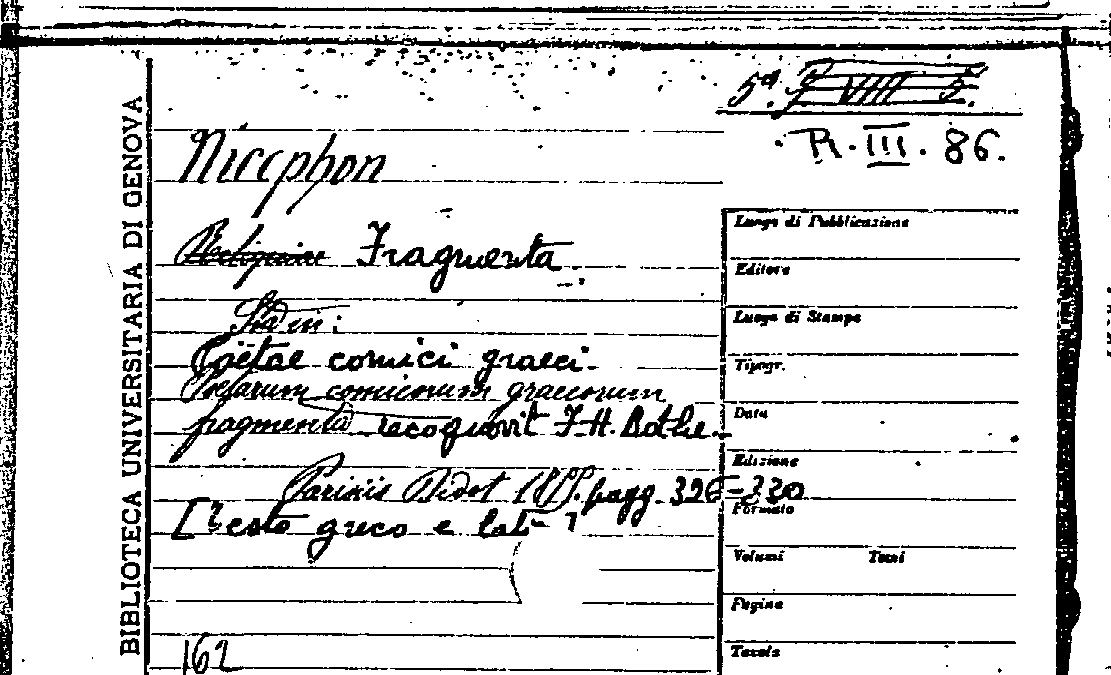 BIBLIOTECA UNIVERSITARIA DI GENOVA
5a. VIII 5.
R. III. 86.
Nicephon
Reliquiae Fragmenta
in:
Poëtae comici graeci.
Poetarum comicorum graecorum
fragmenta recognovit F. H. Bothe.
Parisiis Didot pagg. 326-330
[Testo greco e lat.]
162
Luogo di Pubblicazione
Editore
Luogo di Stampa
Tipogr.
Data
Edizione
Formato
Volumi Tomi
Pagine
Tavole